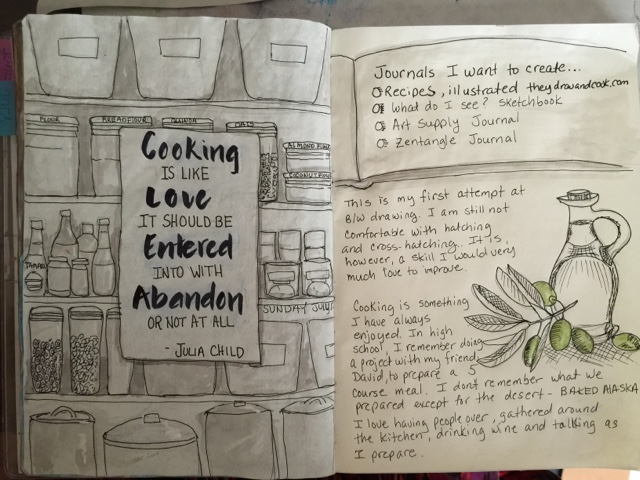 FLOUR
BREAD FLOUR
QUINOA
OATS
ALMOND FLOUR
COCONUT FLOUR
Cooking
IS LIKE
Love
IT SHOULD BE
Entered
INTO WITH
Abandon
OR NOT AT ALL
- JULIA CHILD
SUNDAY JULY
Journals I want to create...
Recipes, illustrated theydrawandcook.com
What do I see? Sketchbook
Art Supply Journal
Zentangle Journal
This is my first attempt at
B/W drawing. I am still not
comfortable with hatching
and cross-hatching. It is,
however, a skill I would very
much love to improve.
Cooking is something
I have always
enjoyed. In high
school, I remember doing
a project with my friend,
David, to prepare a 5
course meal. I dont remember what we
prepared except for the desert - BAKED ALASKA
I love having people over, gathered around
the kitchen, drinking wine and talking as
I prepare.